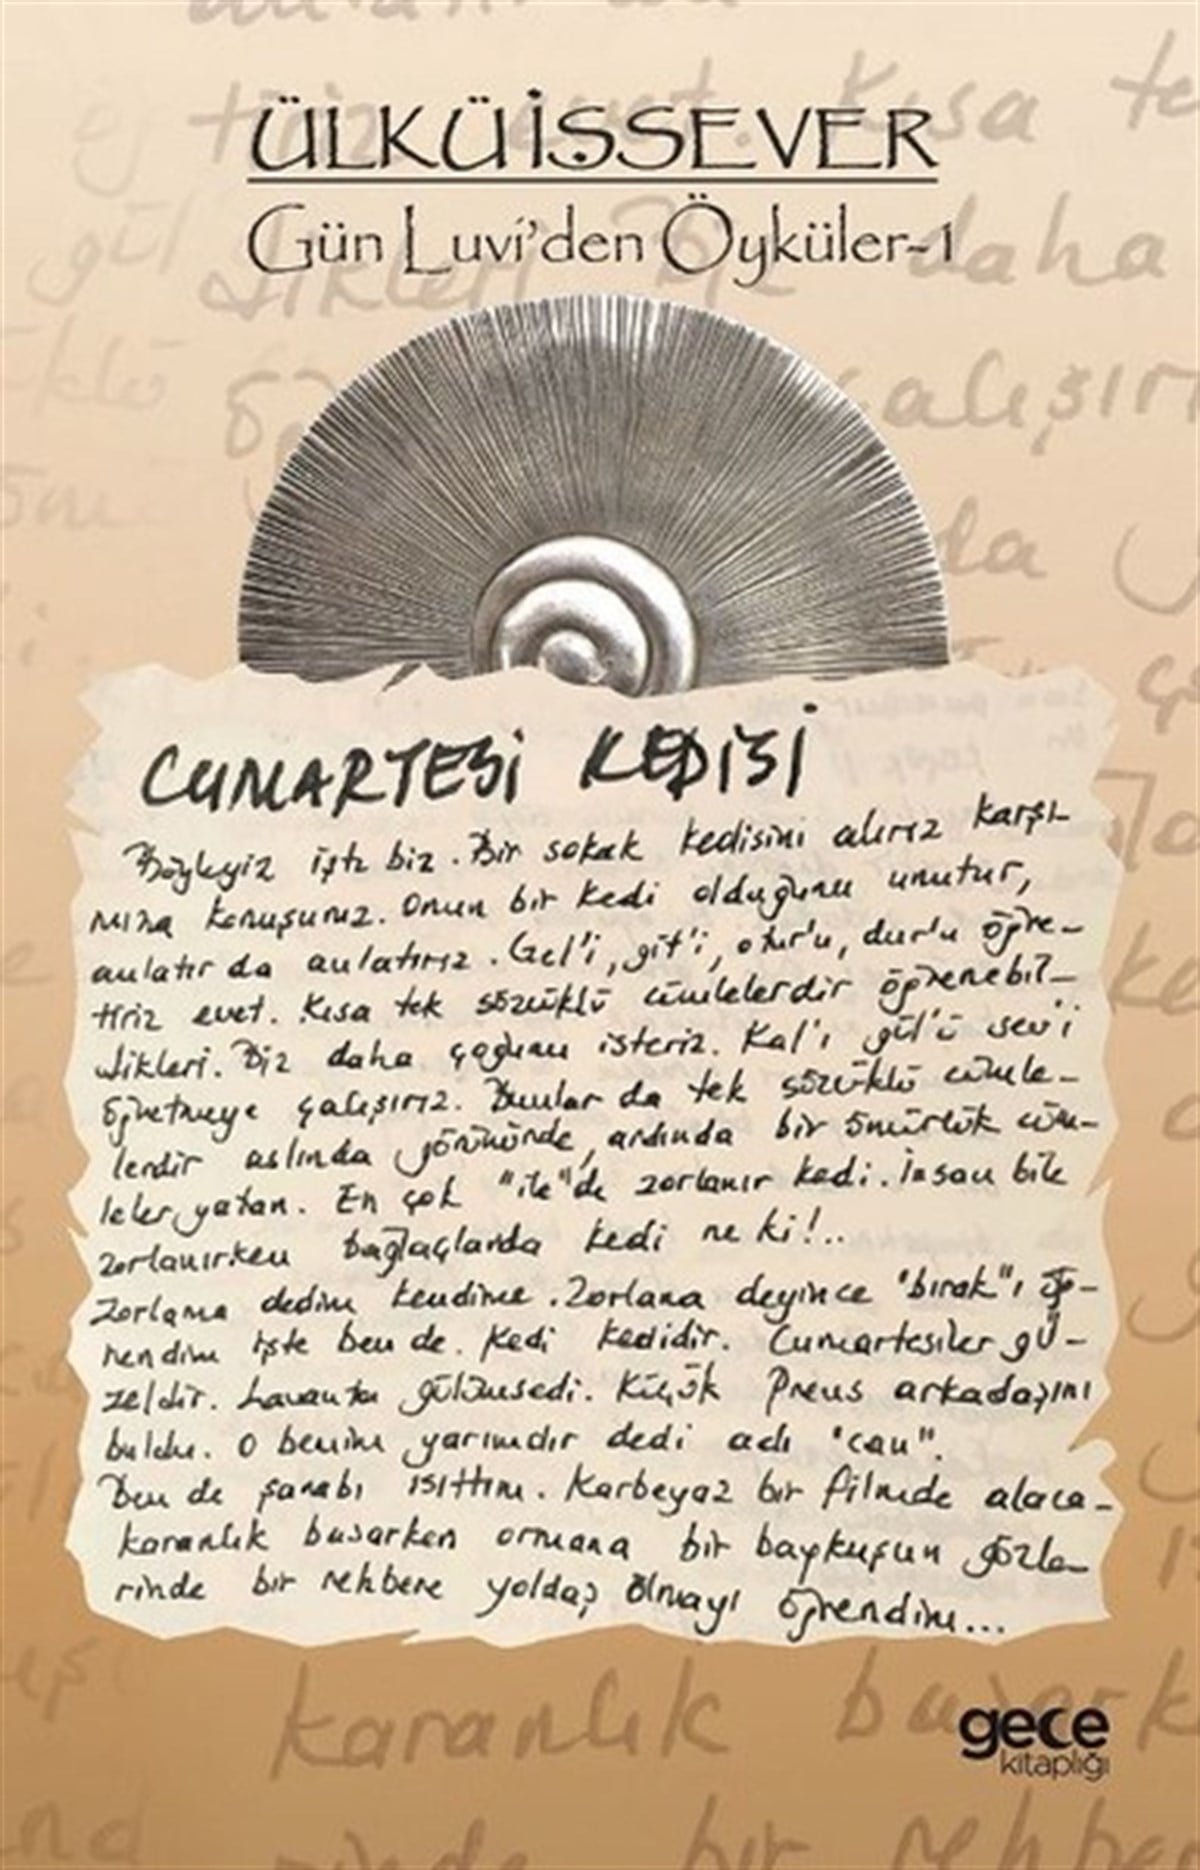 ÜLKÜ İŞSEVER
Gün Luvi'den Öyküler-1
CUMARTESİ KEDİSİ
Böyleyiz işte biz. Bir sokak kedisini alırız karşı-
mıza konuşuruz. Onun bir kedi olduğunu unutur,
anlatır da anlatırız. Gel'i, git'i, otur'u, dur'u öğre-
tiriz evet. Kısa tek sözcüklü cümlelerdir öğrenebil-
dikleri. Biz daha çoğunu isteriz. Kal'ı gül'ü sev'i
öğretmeye çalışırız. Bunlar da tek sözcüklü cümle-
lerdir aslında görünürde, ardında bir ömürlük cüm-
leler yatan. En çok "ile"de zorlanır kedi. İnsan bile
zorlanırken bağlaçlarda kedi ne ki!..
Zorlama dedim kendime. Zorlama deyince "bırak"ı öğ-
rendim işte ben de. Kedi kedidir. Cumartesiler gü-
zeldir. Lavanta gülümsedi. Küçük Prens arkadaşını
buldu. O benim yarımdır dedi adı "can".
Ben de şarabı ısıttım. Karbeyaz bir filmde alaca-
karanlık basarken ormana bir baykuşun gözle-
rinde bir rehbere yoldaş olmayı öğrendim...
gece
kitaplığı